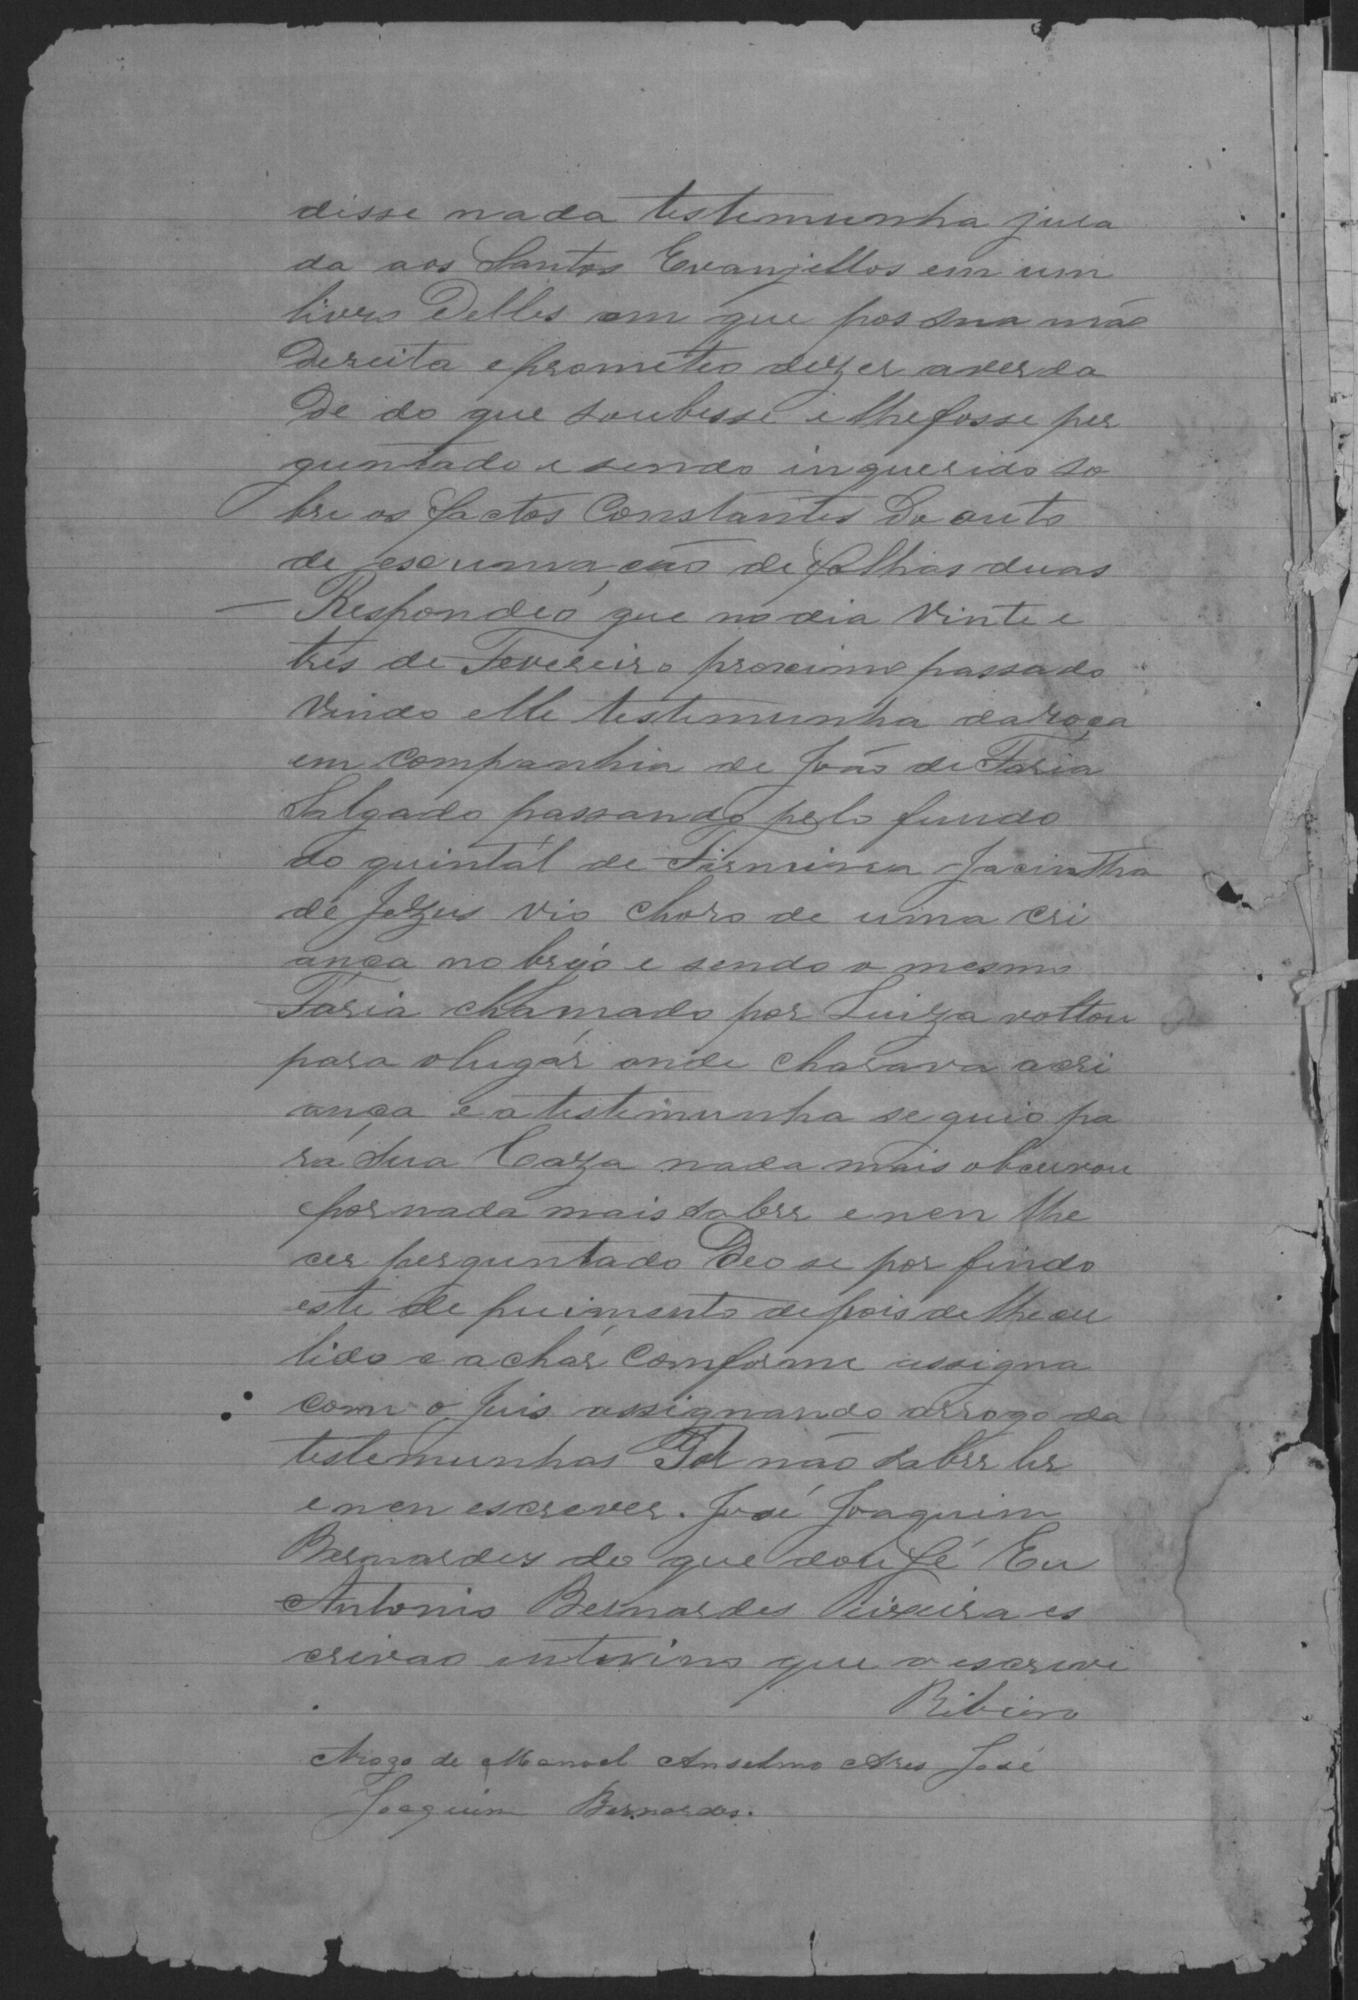 disse nada testemunha jura
da aos Santos Evanjellos em um
livro Delles em que pos sua mão
Dereita e prometeo dizer averda
De do que soubesse e lhe fosse per
guntado e sendo inquerido so
bre os factos Constantes Do auto
de ex umação de folhas duas
— Respondeo que no dia Vinte e
tres de Fevereiro proximo passado
Vindo elle testemunha daroça
em companhia de João de Faria
Salgado passando pelo fundo
do quintál de Firmina Jacintha
de Jezus vio choro de uma cri
ança no brejo e sendo o mesmo
Faria chamado por Luiza voltou
para olugár onde charava acri
ança e a testemunha seguio pa
rá sua Caza nada mais obcervou
por nada mais saber e nen lhe
cer perguntado Deo se por findo
este de puimento depois de lhe cer
lido e achár Comforme assigna
com o Juis assignando arrogo da
testemunhas Por não saber ler
e nen escrever. José Joaquim
Bernardes do que dou fé Eu
Antonio Bernardes Teixeira es
crivao enterino que o escreve
Ribeiro
Arogo de Manoel Anselmo Ares José
Joaquim Bernardes.